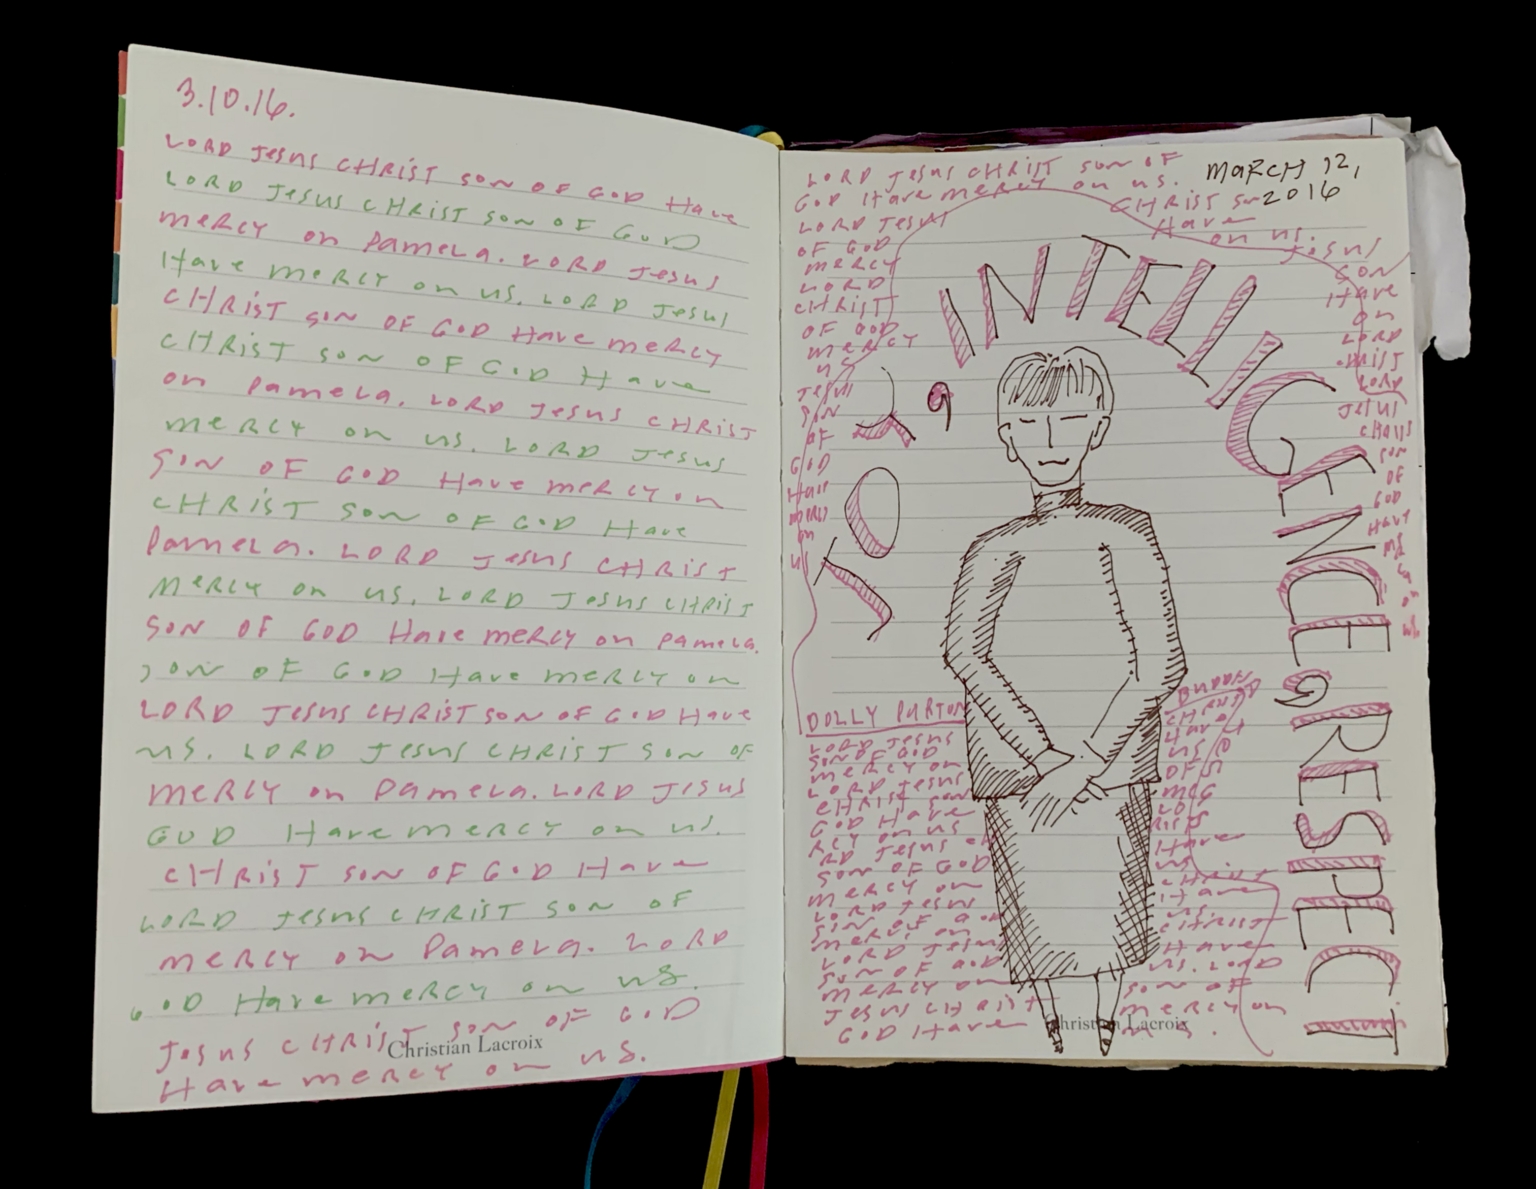 3.10.16.
LORD Jesus CHRIST son OF GOD Have
LORD Jesus CHRIST son OF GOD
mercy on Pamela. LORD Jesus
Have mercy on us. LORD Jesus
CHRIST son OF GOD Have mercy
CHRIST son OF GOD Have
on Pamela. LORD Jesus CHRIST
mercy on us. LORD Jesus
son OF GOD Have mercy on
CHRIST son OF GOD Have
Pamela. LORD Jesus CHRIST
mercy on us. LORD Jesus CHRIST
son OF GOD Have mercy on Pamela.
son OF GOD Have mercy on
LORD Jesus CHRIST son OF GOD Have
us. LORD Jesus CHRIST son OF
mercy on Pamela. LORD Jesus
GOD Have mercy on us.
CHRIST son OF GOD Have
LORD Jesus CHRIST son OF
mercy on Pamela. LORD
GOD Have mercy on us.
Jesus CHRIST son OF GOD
Have mercy on us.
Christian Lacroix
MARCH 12,
2016
LORD Jesus CHRIST son OF
GOD Have mercy on us.
CHRIST son
LORD Jesus
Have
OF GOD
on us. Jesus
mercy
son
LORD
Have
CHRIST
on
OF GOD
LORD
mercy
us
LORD
Jesus
Jesus
son
CHRIST
OF
son
GOD
OF
Have
GOD
mercy
Have
on
us
INTELLIGENCE, RESPECT
JOY,
DOLLY PARTON
LORD Jesus
son OF GOD
mercy on
LORD Jesus
CHRIST son
GOD Have
mercy on us
LORD Jesus
son OF GOD
mercy on
LORD Jesus
son OF GOD
mercy on
LORD Jesus
son OF GOD
mercy on
Jesus CHRIST
GOD Have
BUDDHA
CHRIST
Have
us
OF
Have
us
CHRIST
Have
us.
CHRIST
Have
us. LORD
son OF
mercy on
us.
Christian Lacroix